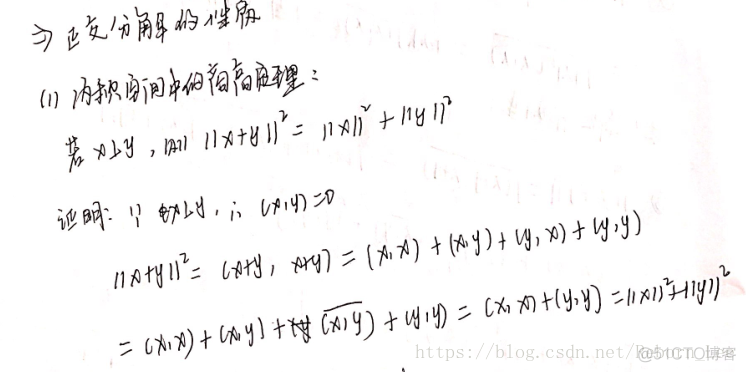 ⇒ 正交分解的性质
(1) 内积空间中的商高定理:
若 x⊥y, 则 ||x+y||² = ||x||² + ||y||²
证明: ∵ x⊥y, ∴ (x,y)=0
||x+y||² = (x+y, x+y) = (x,x) + (x,y) + (y,x) + (y,y)
= (x,x) + (x,y) + \overline{(x,y)} + (y,y) = (x,x)+(y,y) = ||x||²+||y||²
https://blog.csdn.net/
@51CTO博客